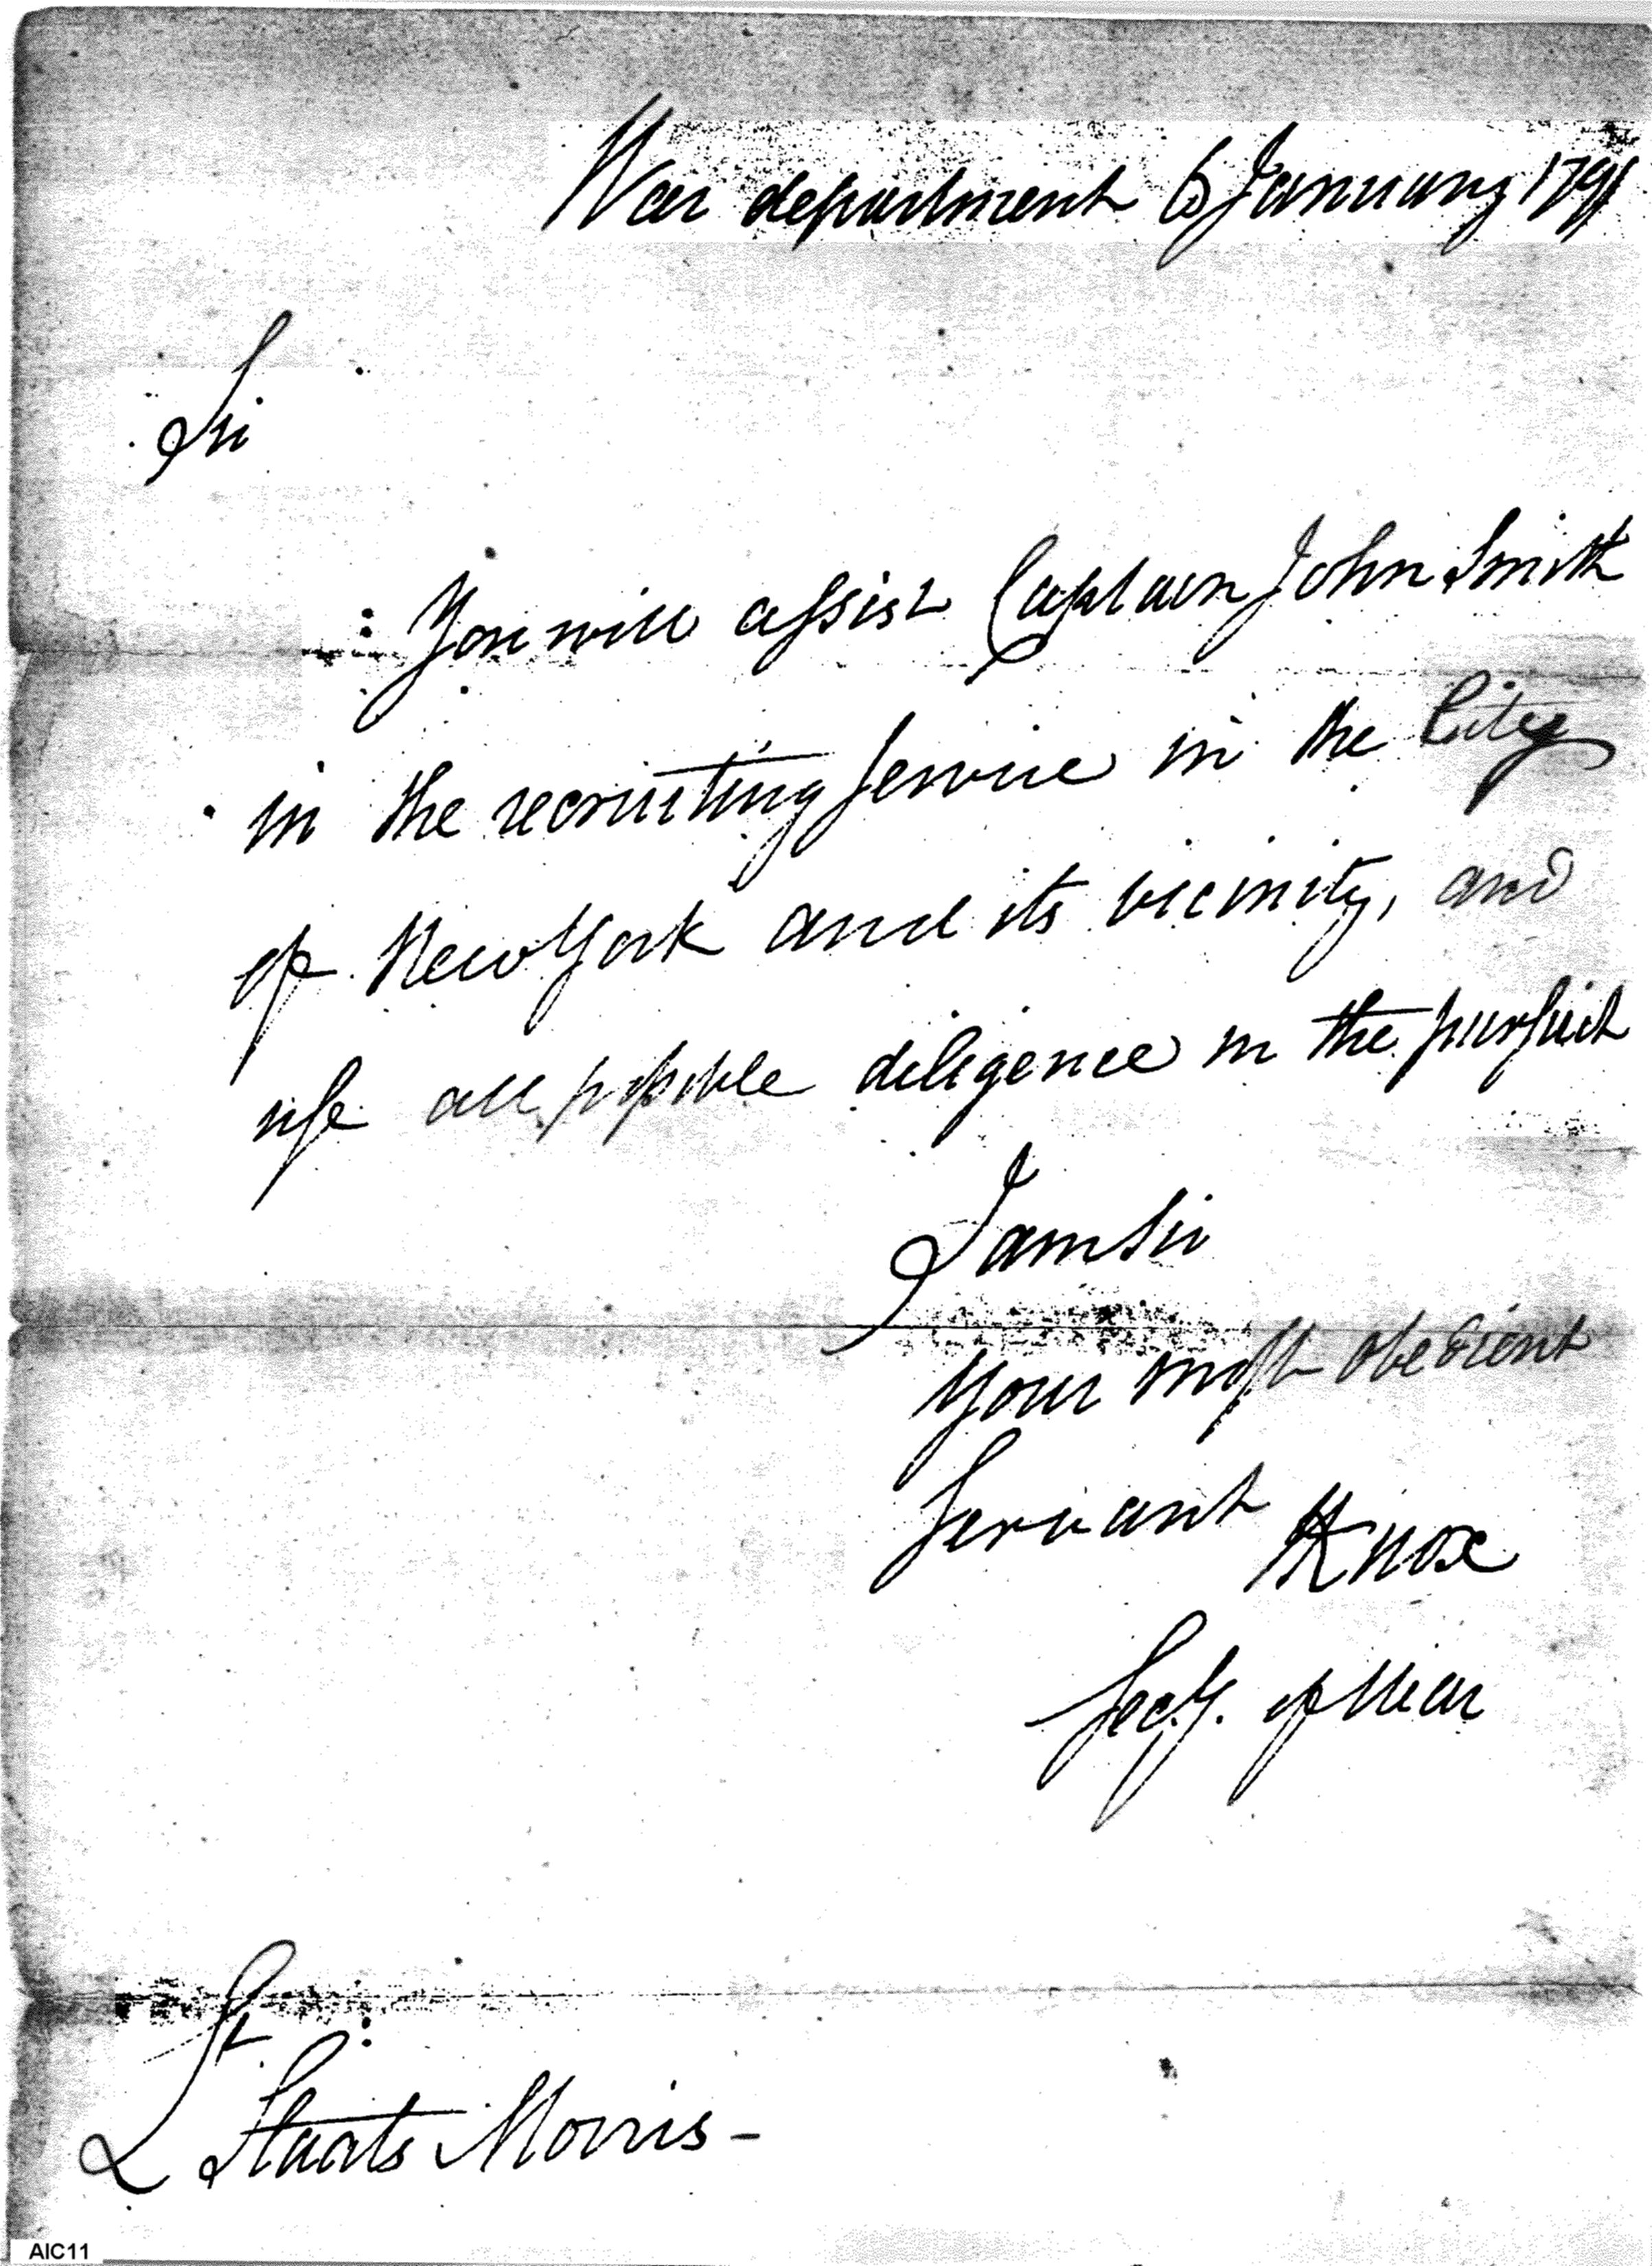 War department 6 January 1791
Sir
You will assist Captain John Smith
in the recruiting service in the City
of New York and its vicinity, and
use all possible diligence in the pursuit
I am Sir
Your most obedient
Servant
HKnox
Secy. of War
Lt.
Staats Morris -
AIC11